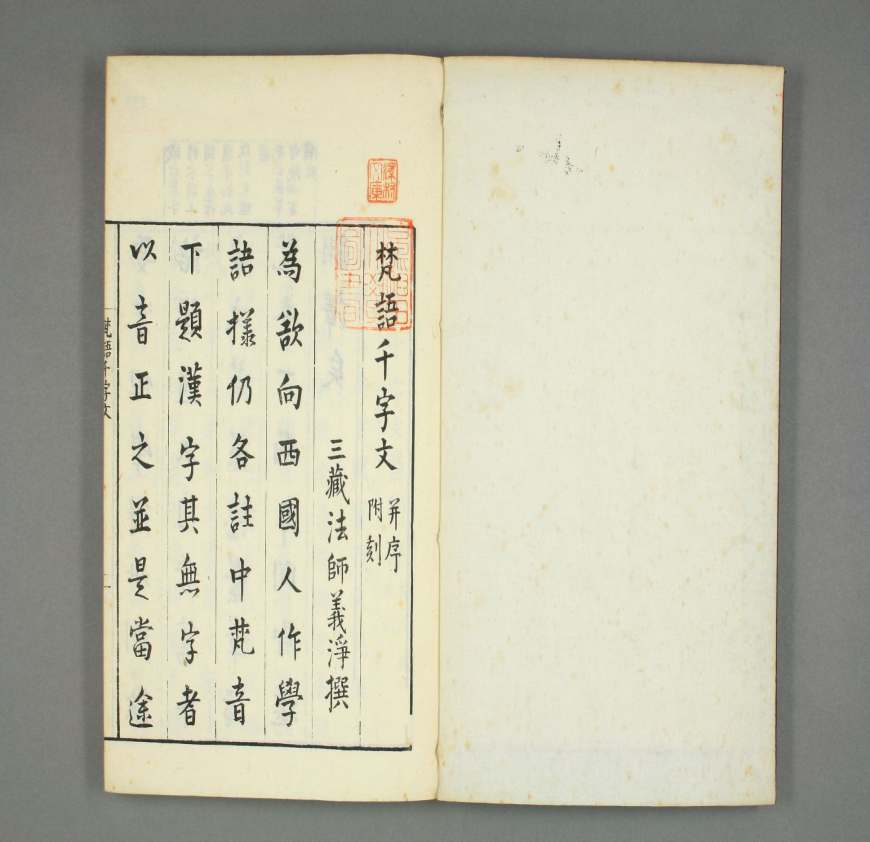 梵語千字文 并序 附刻
三藏法師義淨撰
為欲向西國人作學
語樣仍各註中梵音
下題漢字其無字者
以音正之並是當途
梵語千字文